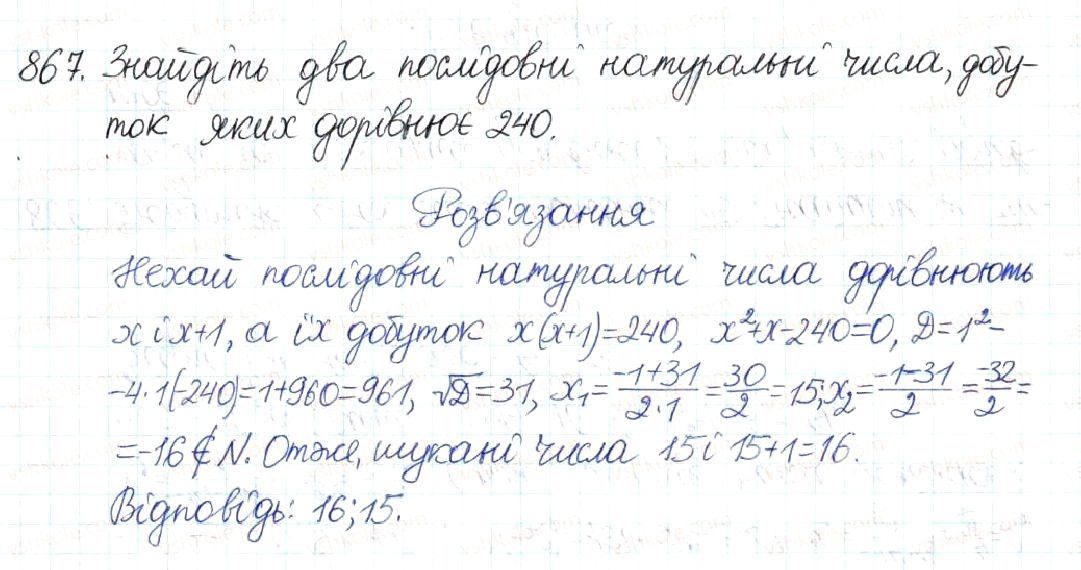 867. Знайдіть два послідовні натуральні числа, добу-
ток яких дорівнює 240.
Розв'язання
Нехай послідовні натуральні числа дорівнюють
x і x+1, а їх добуток x(x+1)=240, x²+x-240=0, D=1²-
-4·1(-240)=1+960=961, √D=31, x₁=(-1+31)/(2·1)=30/2=15; x₂=(-1-31)/2=-32/2=
=-16∉N. Отже, шукані числа 15 і 15+1=16.
Відповідь: 16; 15.